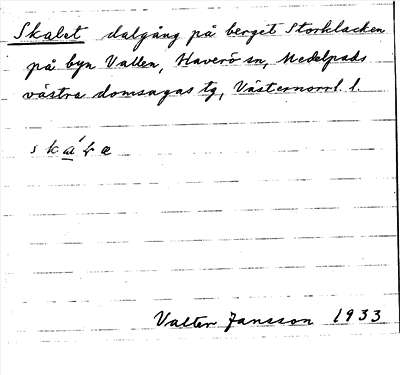 Skalet dalgång på berget Storklacken
på byn Vallen, Haverö sn, Medelpads
västra domsagas tg, Västernorrl. l.
Valter Jansson 1933